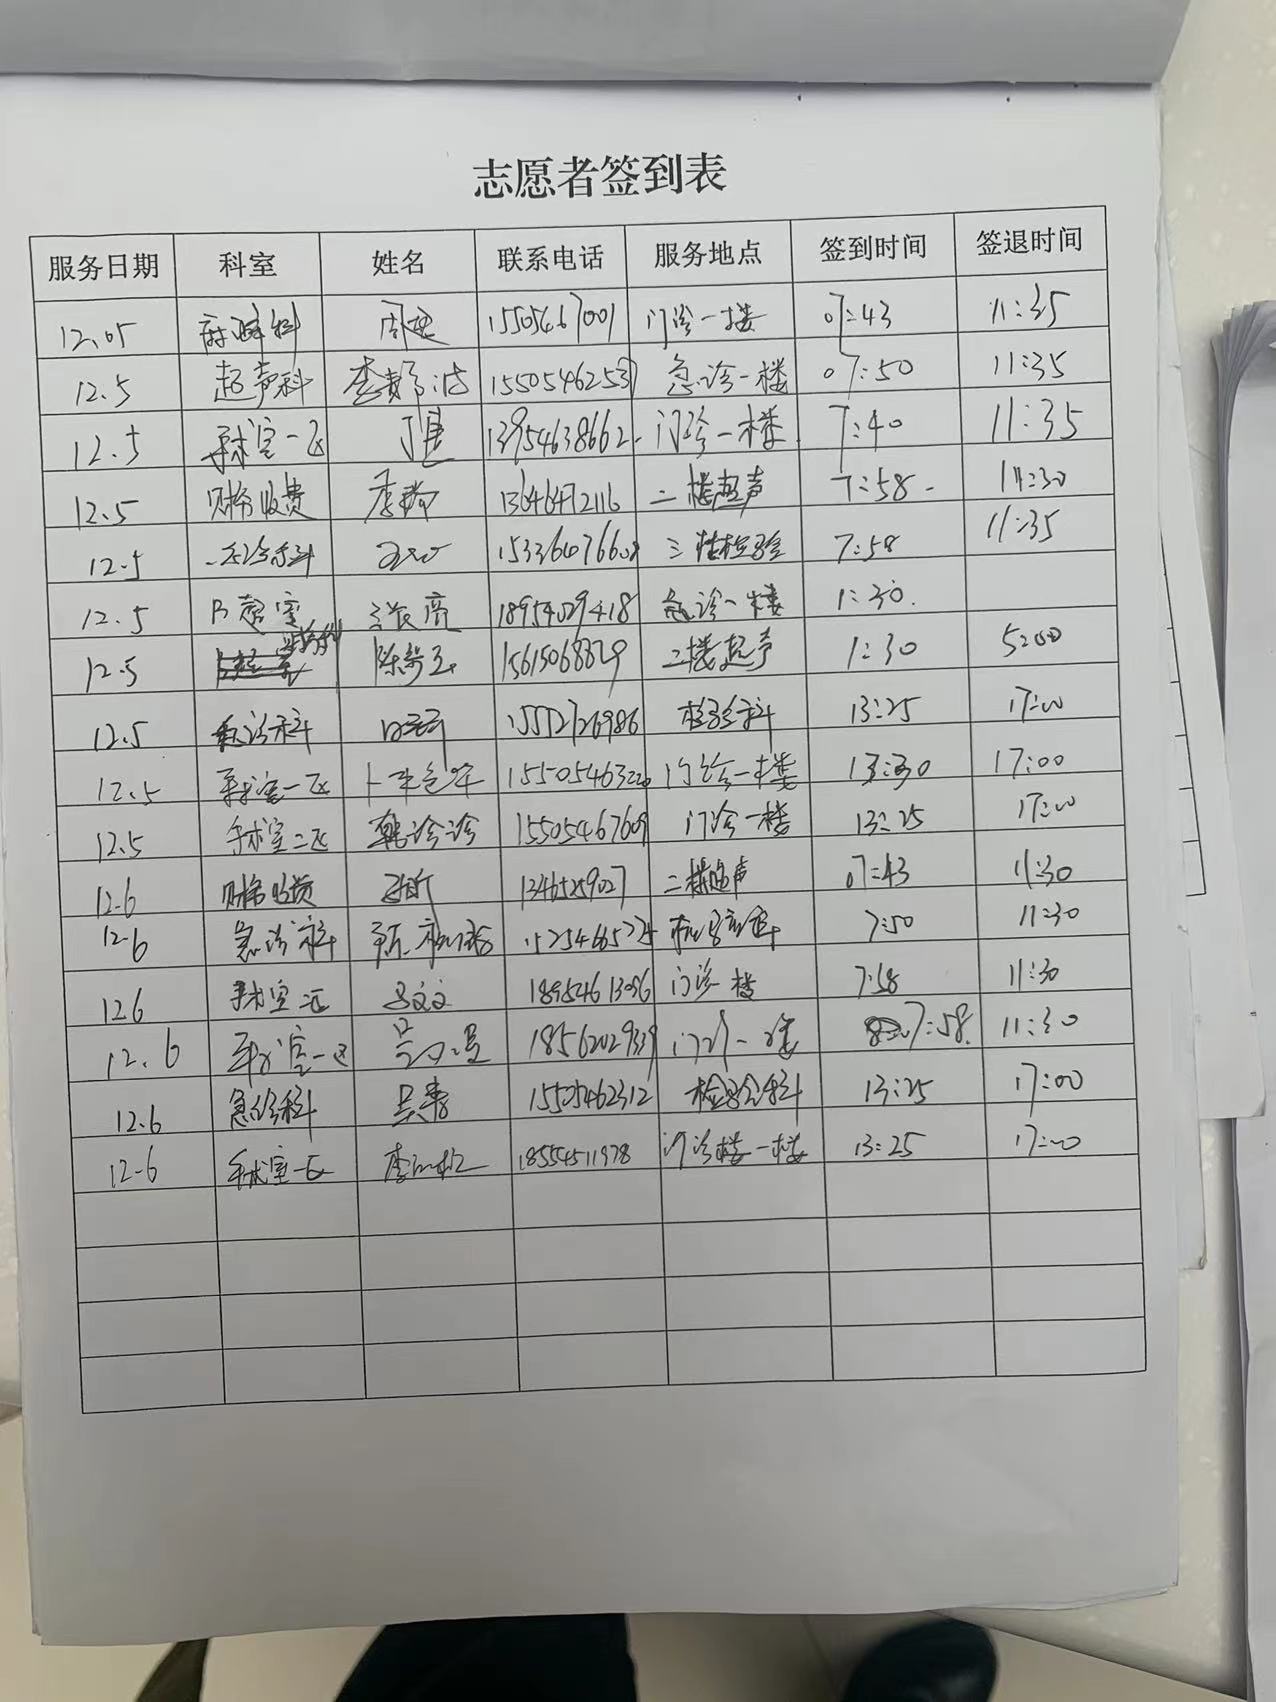 志愿者签到表
服务日期 科室 姓名 联系电话 服务地点 签到时间 签退时间
12.05 麻醉科 15505467001 门诊一楼 07:43 11:35
12.5 超声科 15505462537 急诊一楼 07:50 11:35
12.5 手术室一区 13954638662 门诊一楼 7:40 11:35
12.5 财务收费 二楼超声 7:58 11:30
12.5 三楼检验 7:58 11:35
12.5 B超室 张亮 18954029418 急诊一楼 1:30
12.5 15615068829 二楼超声 1:30 5:00
12.5 急诊科 15552726986 检验科 13:25 17:00
12.5 手术室一区 门诊一楼 13:30 17:00
12.5 手术室二区 韩诊诊 15505467609 门诊一楼 13:25 17:00
12.6 财务收费 二楼超声 07:43 11:30
12.6 急诊科 检验科 7:50 11:30
12.6 手术室二区 吕文文 18954613096 门诊楼 7:58 11:30
12.6 手术室一区 18562029339 门诊一楼 7:58 11:30
12.6 急诊科 15505462312 检验科 13:25 17:00
12.6 手术室一区 18554511978 门诊楼一楼 13:25 17:00